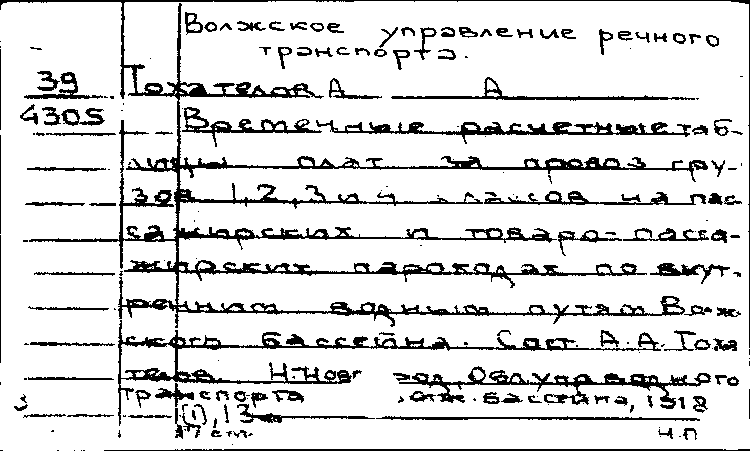 Волжское управление речного
транспорта.
39 Тохателов А А
4305 Временные расчетные таб-
лицы плат за провоз гру-
зов 1, 2, 3 и 4 классов на пас
сажирских и товаро-пасса-
жирских пароходах по внут-
ренним водным путям Волж-
ского бассейна. Сост. А.А. Тоха
телов. Н-Новг Обл. упр водного
транспорта бассейна, 1918
[1], 13
17 стр.
Н.П